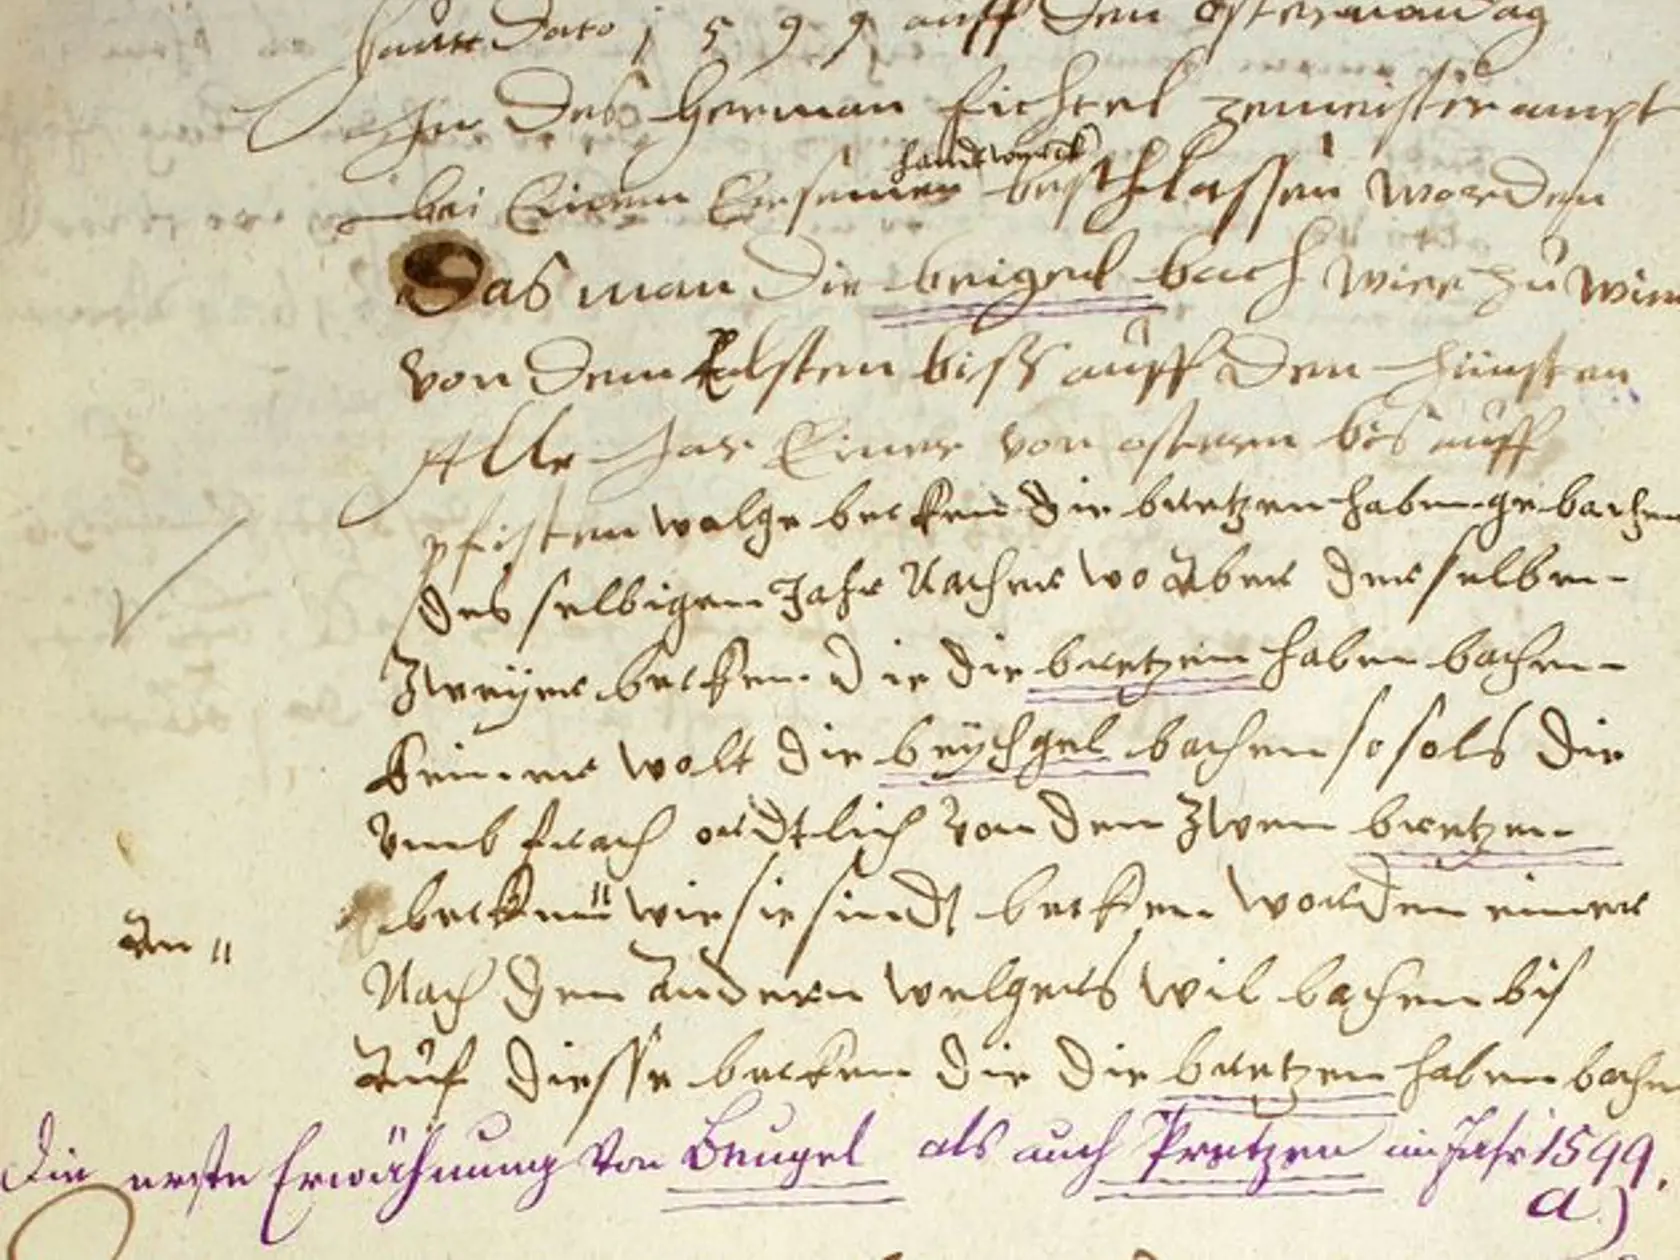 Dato 1599 auff den Ostermondag
In des Herman Eichtel zemeister ampt
handtwerck
bei Einem Ersamen beschlossen worden
Das man die beigel bach wier zu
von dem Elsten biss auff den Jünsten
Alle Jar Einer von osteren bis auff
pfisten walge becken die bretzen haben gebachen
des selbigen Jahr Nacher wo Aber der selben
Zweyer becken die die bretzen haben bachen
keiner wolt die beychgel bachen so sols die
vmb frach ordtlich von den zwen bretzen
becken wie sie sindt becken worden einer
an
Nach dem Andern welgers wil bachen bis
Auf diesse becken die die bretzen haben bachen
Die erste Erwähnung von Beugel als auch Pretzen im Jahr 1599.
a)